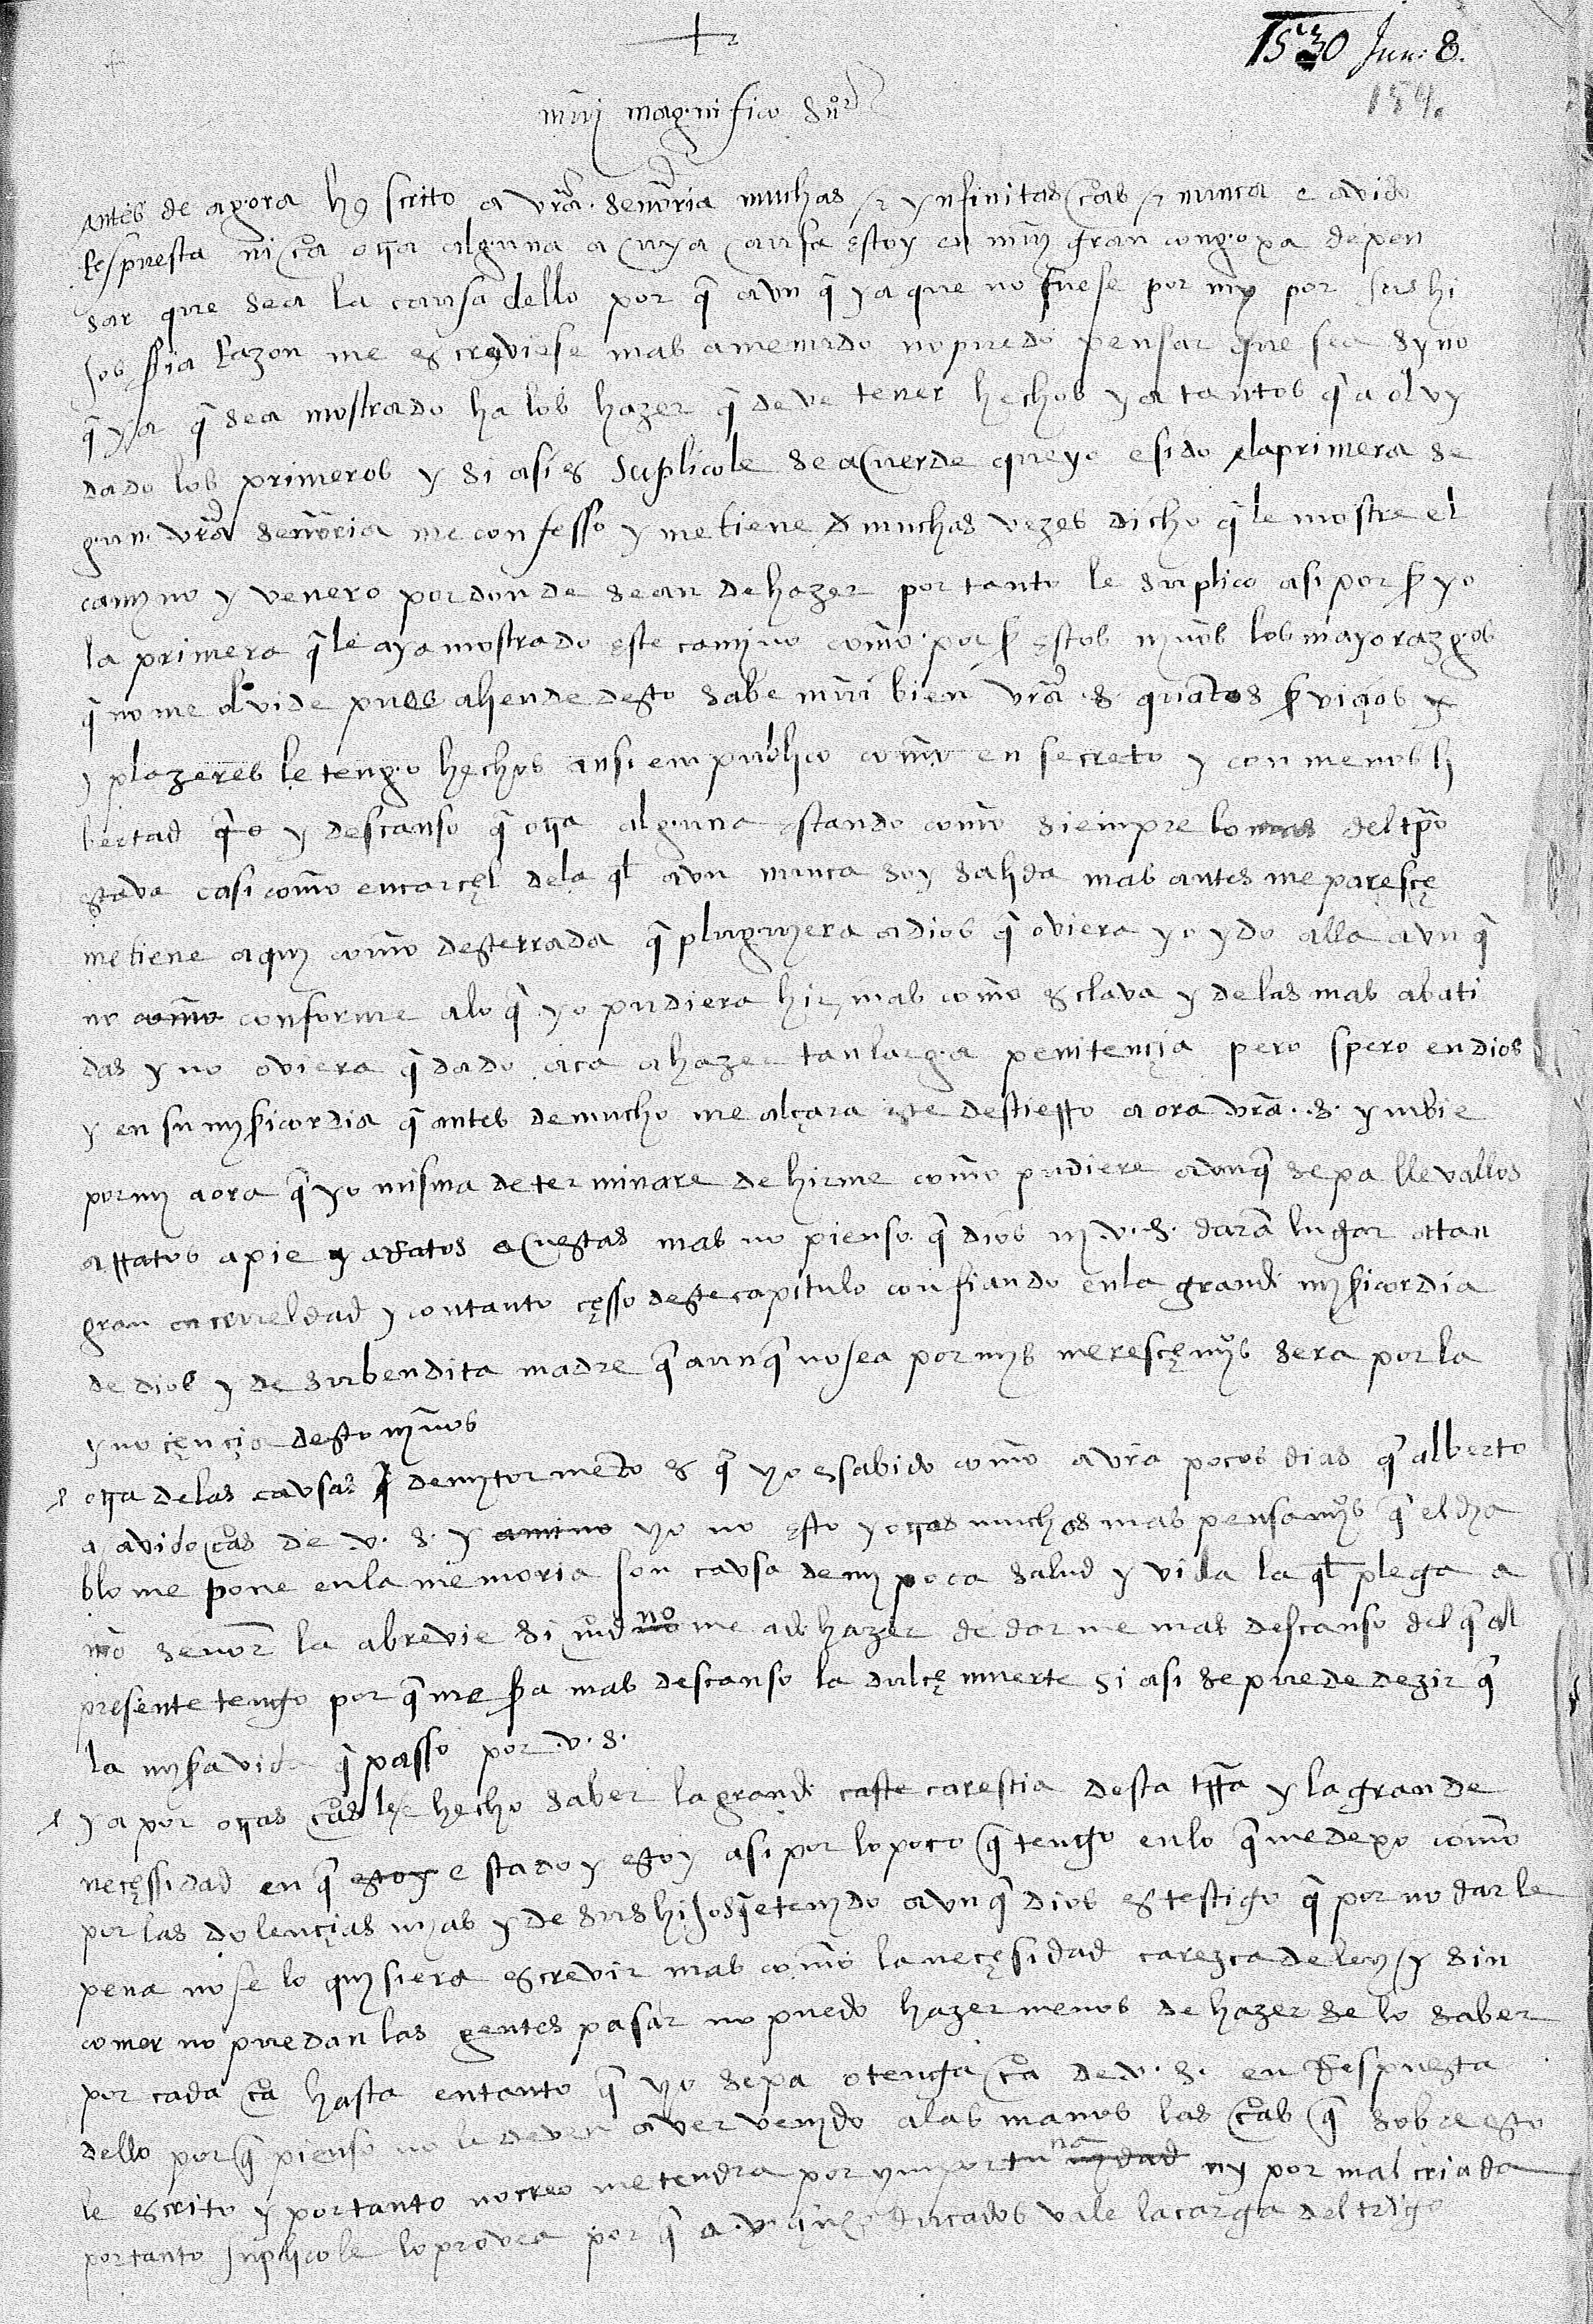 1530 Jun: 8.
154.
muy magnifico Sor
antes de agora he scrito a vra. señoria muchas y ynfinitas cas y nunca e avido
Respuesta ni ca otra alguna a cuya causa estoy en muy gran congoxa de pen
sar que sea la causa dello por q̃ avn q̃ ya que no fuese por my por sus hi
jos sia Razon me escreviese mas amenudo no puedo pensar que sea syno
q̃ ya q̃ sea mostrado ha los hazer q̃ deve tener hechos ya tantos q̃ a olvy
dado los primeros y si asi es suplicole se acuerde que yo e sido la primera se
gun vra señoria me confesso y me tiene muchas vezes dicho q̃ le mostre el
camyno y venero por donde sean de hazer por tanto le suplico asi por s yo
la primera q̃ le aya mostrado este camyno como por s estos nyños los mayorazgos
q̃ no me olvide pues aliende desto sabe mui bien vra .s. quantos sviçios y
y plazeres le tengo hechos ansi en publico como en secreto y con menos li
bertad q̃ o y descanso q̃ otra alguna estando como siempre lo mas del tpo
estava casi como en carçel dela ql avn nunca soy salida mas antes me paresçe
me tiene aquy como desterrada q̃ pluguyera a dios q̃ oviera yo ydo alla avn q̃
no como conforme alo q̃ yo pudiera hir mas como esclava y delas mas abati
das y no oviera q̃dado aca a hazer tan larga penitençia pero spero en dios
y en su mysicordia q̃ antes de mucho me alçara este destierro aora vra. s. ynbie
por my aora q̃ yo misma determinare de hirme como pudiere avnq̃ sepa llevallos
arratos a pie y aRatos acuestas mas no pienso q̃ dios ny .v.s. dara lugar a tan
gran crueldad y con tanto çesso deste capitulo confiando enla grande mysicordia
de dios y de su bendita madre q̃ aunq̃ no sea por mys meresçemyos sera por la
ynoçençia desto nyños
otra delas causas q̃ de my tormento es q̃ yo e sabido como avra pocos dias q̃ alberto
a avido cas de .v. s. y ami no yo no esto y otras muchas mas pensamyos q̃ el dya
blo me pone enla memoria son causa de my poca salud y vida la ql plega a
nro senor la abrevie si vmd no me a de hazer de dar me mas descanso del q̃ al
presente tengo por q̃ me sa mas descanso la dulçe muerte si asi se puede dezir q̃
la mysa vida q̃ passo por .v.s.
ya por otras cas le e hecho saber la grande caste carestia desta trra y la grande
neçessidad en q̃ estoy e stado y estoy asi por lo poco q̃ tengo enlo q̃ me dexo como
por las dolençias myas y de sus hijos q̃ e tenydo avnq̃ dios es testigo q̃ por no darle
pena no se lo quysiera escrevir mas como la neçesidad carezca de ley y sin
comer no puedan las gentes pasar no puedo hazer menos de hazer se lo saber
por cada ca hasta en tanto q̃ yo sepa o tenga ca de .v.s. en Respuesta
dello porq̃ pienso no le deven aver venydo alas manos las cas q̃ sobre esto
le escrito y por tanto no creo me tendra por ynportuna nydad ny por mal criada
por tanto suplicole lo provea por q̃ a .v. ducados vale la carga del trigo